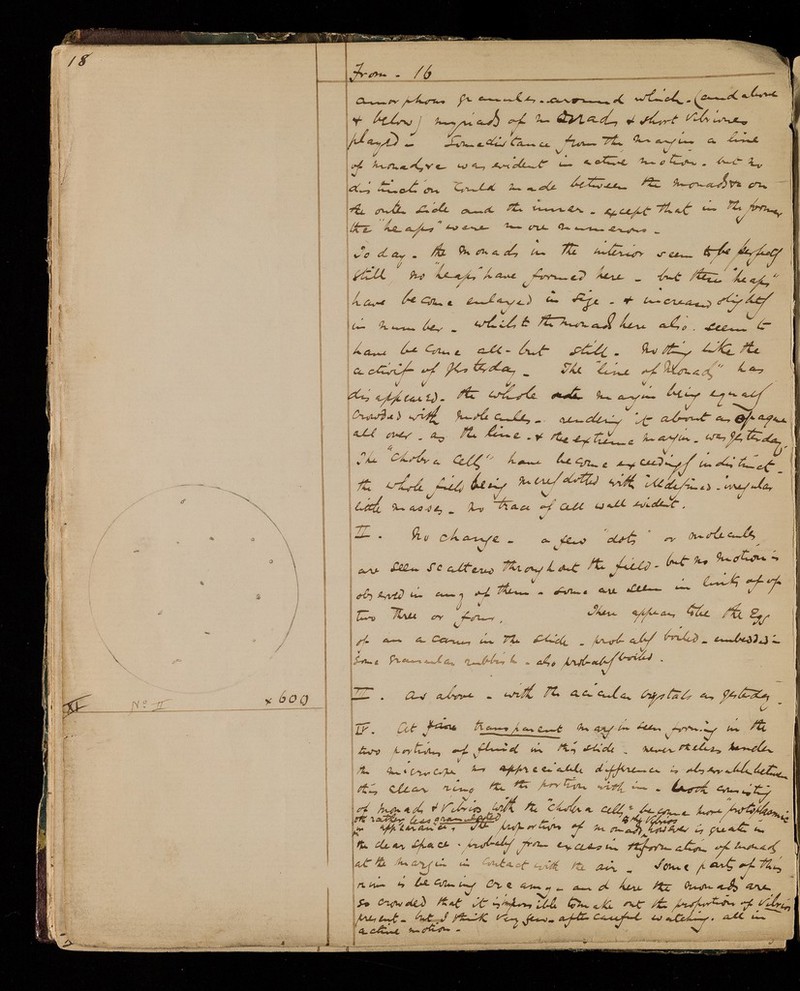 18
From - 16
amorphous granules - around which - (and above
& below) myriads of monads & short Vibriones
played - Some distance from the margin a line
of monads &c was evident in active motion. but no
distinction could made between the monads &c on
the outer side and the inner - except that in the former
the "heaps" were more numerous -
To day - the monads in the interior seem to be perfectly
still no "heaps" have formed here - but these "heaps"
have become enlarged in size - & increased slightly
in number - whilst the monads here also seem to
have become all-but still - Nothing like the
activity of yesterday - The "line of Monads" has
disappeared - the whole margin being equally
crowded with molecules - rendering it about as opaque
all over - as the line - & the extreme margin - was yesterday.
The "Cholera Cells" have become exceedingly indistinct -
the whole field being merely dotted with illdefined - irregular
little masses - no trace of cell wall evident.
II - No change - a few "dots" or molecules
are seen scattered throughout the field - but no motion is
observed in any of them - some are seen in links of
two three or four. There appears to be the Egg
of an acarus in the slide - probably boiled - embedded in
some granular rubbish - also probably boiled.
III - as above - with the acicular crystals as yesterday
IV. At transparent margin seen forming in the
two portions of fluid in this slide - nevertheless under
the microscope no appreciable difference is observable between
this clear ring the portion within - both consisting
of monads & Vibrios with the "cholera cells" become more "protoplasmic
oth rather less granulated
in appearance". The proportion of monads & Vibrios however is greater in
the clear space - probably from excess in the formation of monads
at the margin in contact with the air - Some parts of this
rim is becoming creamy - and here the monads are
so crowded that it is impossible to make out the proportion of Vibrios
present - but I think very few - after careful watching. all in
active motion -
XI Nº II × 600